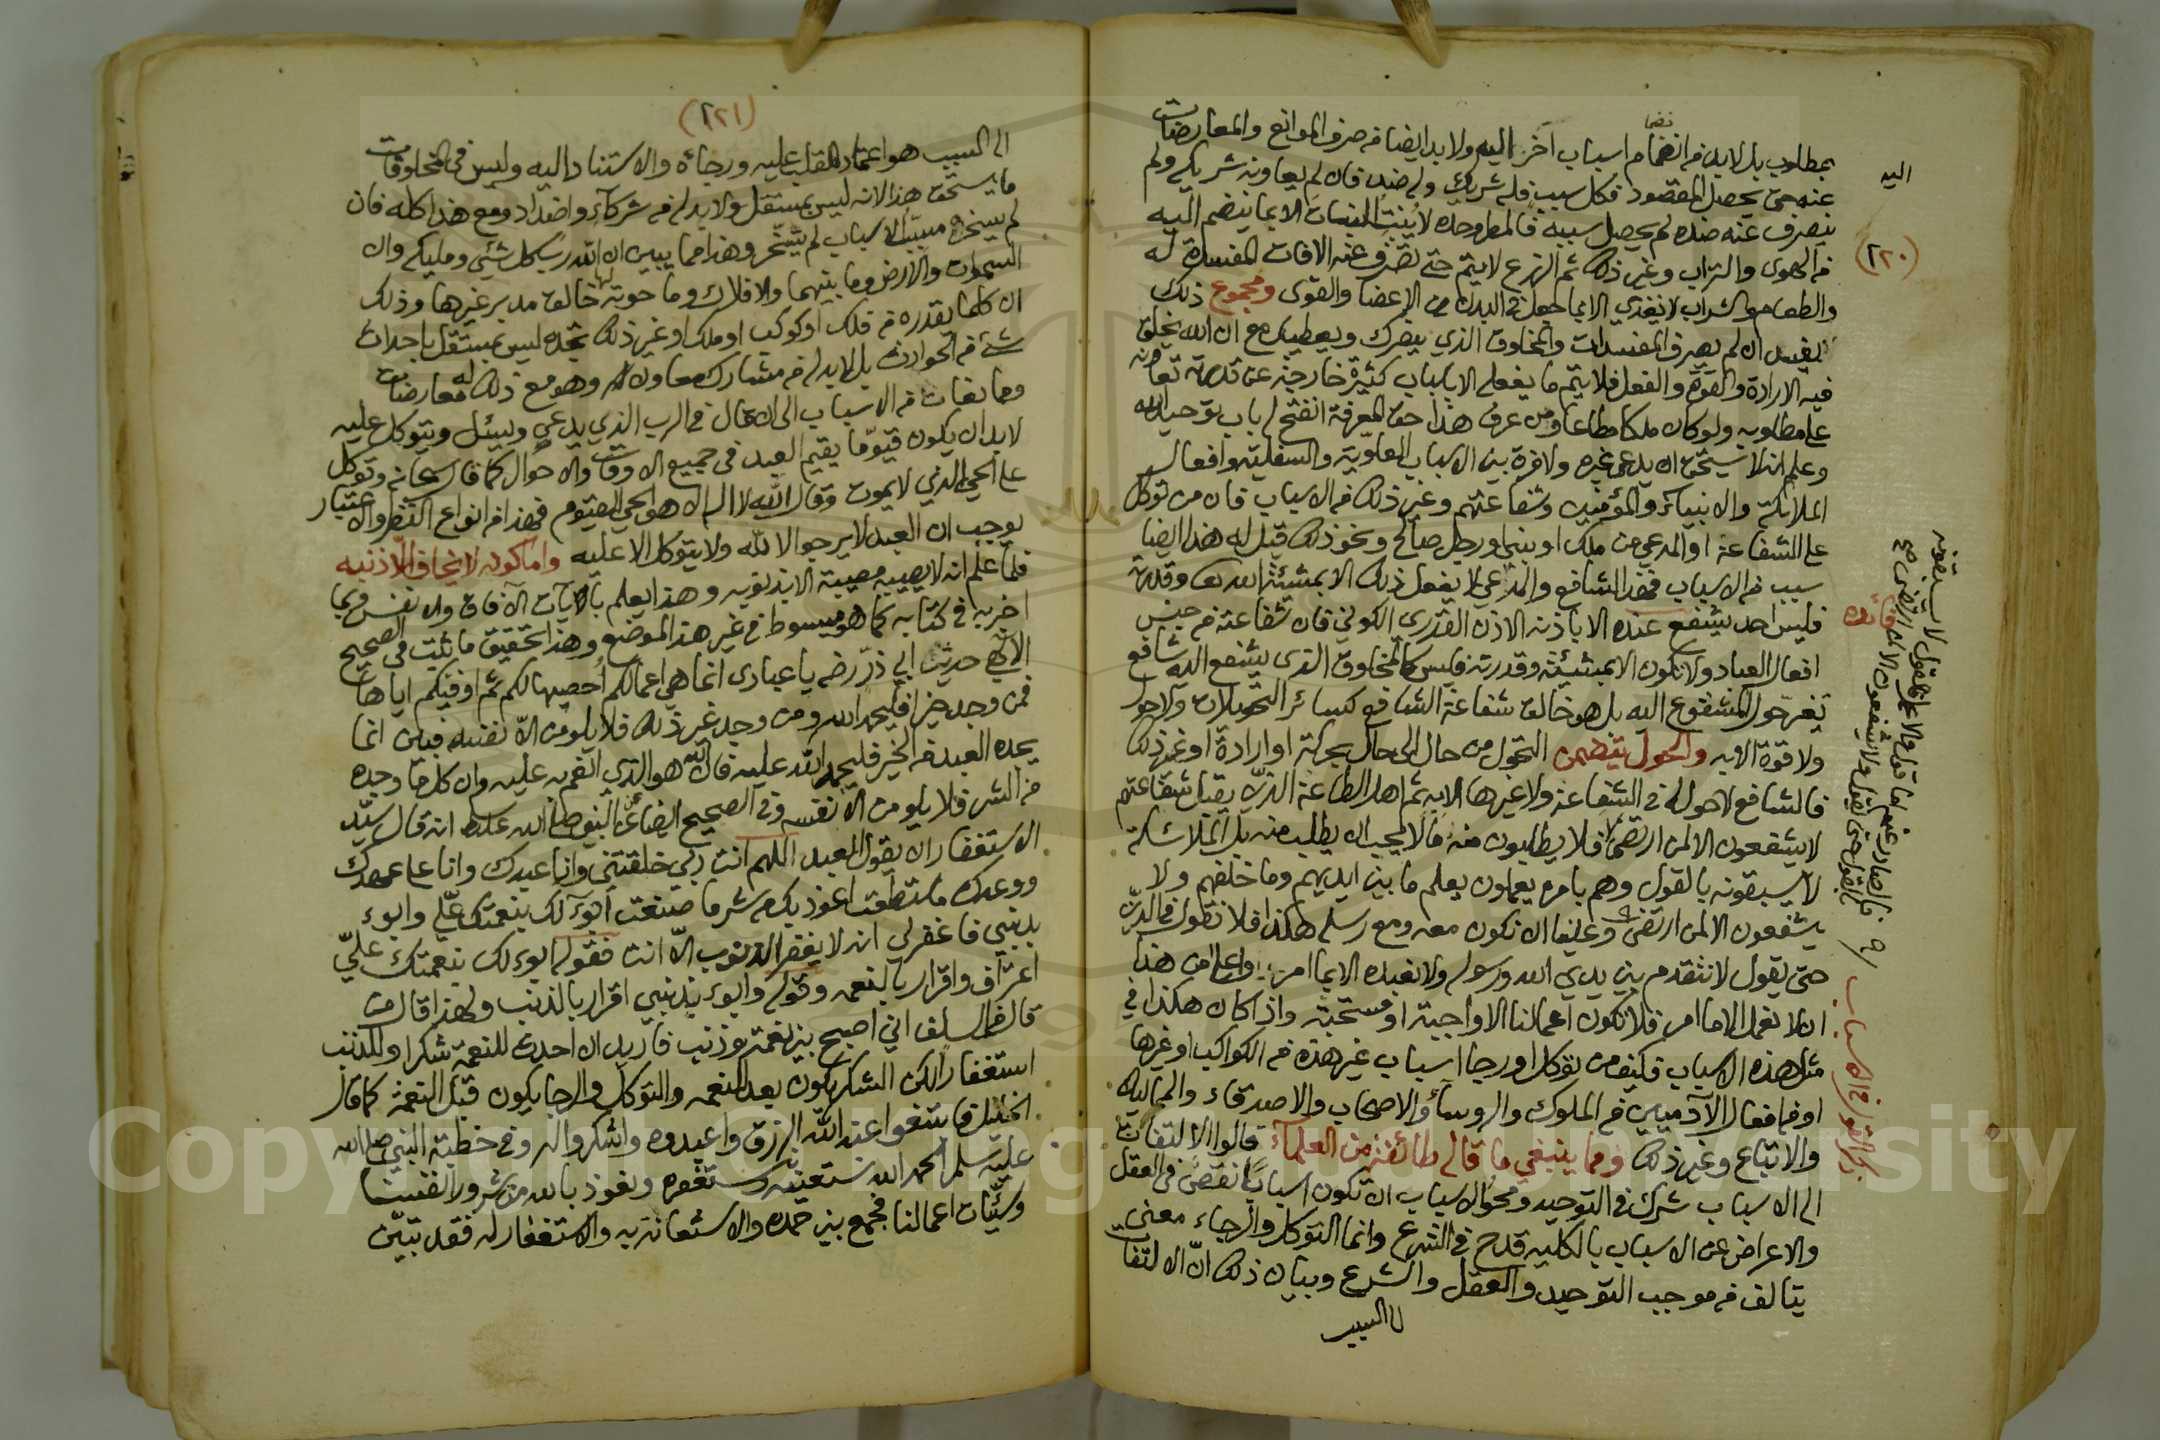 بمطلوب بل لابد من انضمام اسباب اخر اليه ولا بد ايضا من صرف الموانع والمعارضات
عنه حتى يحصل المقصود فكل سبب فله شريك وله ضد فان لم يعاونه شريكه ولم
ينصرف عنه ضده لم يحصل سببه فالمطر وحده لا ينبت النبات الا بما ينضم اليه
من الهوى والتراب وغير ذلك ثم الزرع لا يتم حتى تصرف عنه الافات المفسدة له
والطعام والشراب لا يغذي الا بما جعل في البدن من الاعضا والقوى ومجموع ذلك
لا يفيد ان لم يصرف المفسدات والمخلوق الذي ينصرك ويعطيك مع ان الله يخلق
فيه الارادة والقوة والفعل فلا يتم ما يفعله الا باسباب كثيرة خارجة عن قدرته تعاونه
على مطلوبه ولو كان ملكا مطاعا ومن عرف هذا حق المعرفة انفتح له باب توحيد الله
وعلم انه لا يستحق ان يدعى غيره ولا فرق بين الاسباب العلوية والسفلية وافعال
الملائكة والانبياء والمؤمنين وشفاعتهم وغير ذلك من الاسباب فان من توكل
على الشفاعة او المدعي من ملك او نبي او رجل صالح ونحو ذلك قيل له هذا ايضا
سبب من الاسباب فهذا الشافع والمدعي لا يفعل ذلك الا بمشيئة الله تعا وقدرته
فليس احد يشفع عنده الا باذنه الاذن القدري الكوني فان شفاعته من جنس
افعال العباد ولا تكون الا بمشيئته وقدرته فليس كالمخلوق الذي يشفع اليه شافع
تغير حول المشفوع اليه بل هو خالق شفاعة الشافع كسائر التحولات ولا حول
ولا قوة الا به والحول يتضمن التحول من حال الى حال بحركة او ارادة او غير ذلك
فالشافع لا حول له في الشفاعة ولا غيرها الا به ثم اهل الطاعة الذين يقبل شفاعتهم
لا يشفعون الا لمن ارتضى فلا يطلبون منه ما لا يحب ان يطلب منه بل الملائكة
لا يسبقونه بالقول وهم بامره يعملون يعلم ما بين ايديهم وما خلفهم ولا
يشفعون الا لمن ارتضى وعلينا ان نكون معه ومع رسله هكذا فلا نقول في الدين
حتى يقول لا نتقدم بين يدي الله ورسوله ولا نعبده الا بما امر واعلا من هذا
ان لا نعمل الا ما امر فلا تكون اعمالنا الا واجبة او مستحبة واذا كان هكذا في
مثل هذه الاسباب فكيف من توكل او رجا اسباب غير هذه من الكواكب او غيرها
او من افعال الآدميين من الملوك والروساء والاصحاب والاصدقاء والمماليك
والاتباع وغير ذلك ومما ينبغي ما قاله طائفة من العلماء قالوا الالتفات
الى الاسباب شرك في التوحيد ومحو الاسباب ان تكون اسبابا نقص في العقل
والاعراض عن الاسباب بالكلية قدح في الشرع وانما التوكل والرجاء معنى
يتالف من موجب التوحيد والعقل والشرع وبيان ذلك انّ الالتفات
الى السبب
اليه
(٢٢٠)
فائدة
(٢٢١)
الى السبب هو اعتماد القلب عليه ورجاءه والاستناد اليه وليس في المخلوقات
ما يستحق هذا لانه ليس بمستقل ولا بد له من شركاء واضداد ومع هذا كله فان
لم يسخره مسبب الاسباب لم يتسخر وهذا مما يبين ان الله رب كل شئ ومليكه وان
السموات والارض وما بينهما والافلاك وما حوته لها خالق مدبر غيرها وذلك
ان كلما يقدره من فلك او كوكب او ملك او غير ذلك تجده ليس بمستقل باحداث
شئ من الحوادث بل لا بد له من مشارك معاون له وهو مع ذلك له معارضات
وممانعات من الاسباب الى ان قال في الرب الذي يدعى ويسئل ويتوكل عليه
لا بد ان يكون قيّوما يقيم العبد في جميع الاوقات والاحوال كما قال سبحانه وتوكل
على الحي الذي لا يموت وقال الله لا اله الا هو الحي القيوم فهذا من انواع النظر والاعتبار
يوجب ان العبد لا يرجو الا لله ولا يتوكل الا عليه واما كونه لا يخاف الّا ذنبه
فلما علم انه لا يصيبه مصيبة الا بذنوبه وهذا يعلم بالآيات الآفاق والانفس وبما
اخبر به في كتابه كما هو مبسوط في غير هذا الموضع وهذا تحقيق ما ثبت في الصحيح
الالهي حديث ابي ذرّ رضه يا عبادي انما هي اعمالكم احصيها لكم ثم اوفيكم اياها
فمن وجد خيرا فليحمد الله ومن وجد غير ذلك فلا يلومن الّا نفسه فبين انما
يجده العبد من الخير فليحمد الله عليه فان الله هو الذي انعم به عليه وان كل ما وجده
من الشر فلا يلومن الا نفسه وفي الصحيح ايضا عن النبي صلى الله عليه انه قال سيّد
الاستغفار ان يقول العبد اللهم انت ربي خلقتني وانا عبدك وانا على عهدك
ووعدك ما استطعت اعوذ بك من شر ما صنعت ابوء لك بنعمتك علي وابوء
بذنبي فاغفر لي انه لا يغفر الذنوب الّا انت فقوله ابوء لك بنعمتك عليّ
اعتراف واقرار بالنعمه وقوله وابوء بذنبي اقرار بالذنب ولهذا قال من
قال من السلف اني اصبح بين نعمة وذنب فاريد ان احدث للنعمة شكرا وللذنب
استغفارا لكن الشكر يكون بعد النعمه والتوكل والرجا يكون قبل النعمة كما قال
الخليل فابتغوا عند الله الرزق واعبدوه واشكروا له وفي خطبة النبي صلى الله
عليه سلم الحمد لله نستعينه ونستغفره ونعوذ بالله من شرور انفسنا
وسيّئات اعمالنا فجمع بين حمده والاستعانة به والاستغفار له فقد تبيّن
Copyright © King Saud University